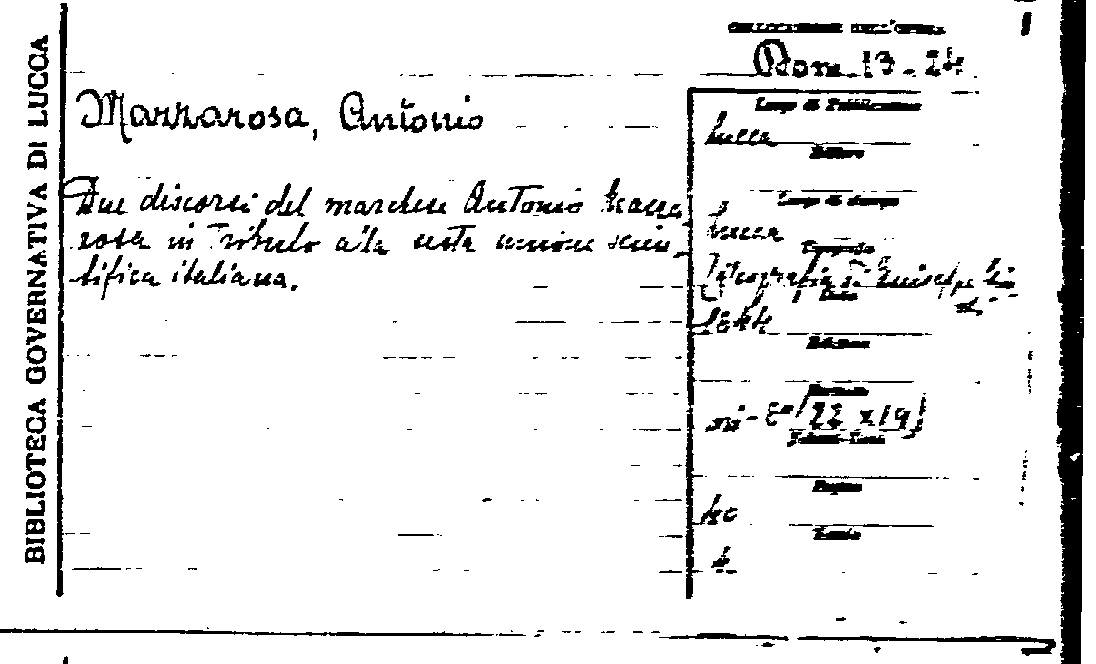 BIBLIOTECA GOVERNATIVA DI LUCCA
COLLOCAZIONE DELL'OPERA
Dom. 13-24
Mazzarosa, Antonio
Due discorsi del marchese Antonio Mazza
rosa in Tributo alla sesta unione scien
tifica italiana.
Luogo di Pubblicazione
Lucca
Editore
Luogo di stampa
Lucca
Tipografia
Tipografia di Giuseppe
Data
1844
Edizione
Formato
in-8° (22 x 19)
Volumi-Tomi
Pagine
40
Tavole